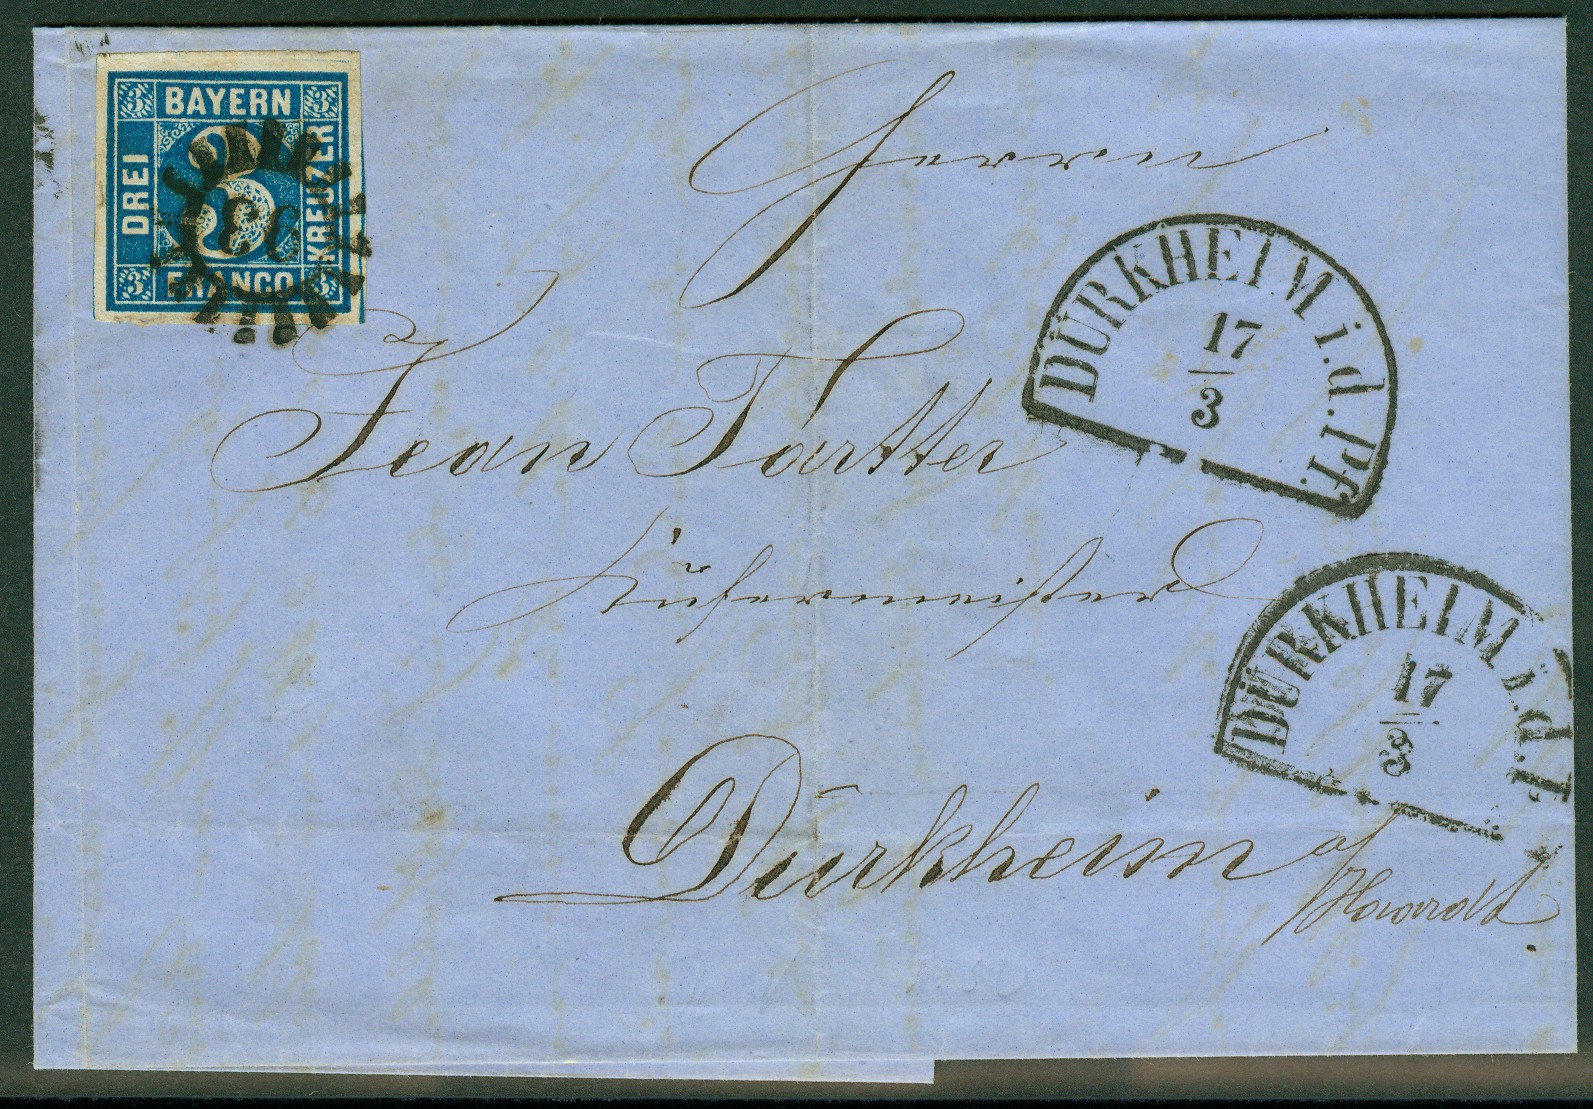 3 BAYERN 3
DREI
3
KREUZER
3 FRANCO 3
Herrn
Jean Fartter
Küfermeister
Dürkheim a/
Haardt
DÜRKHEIM i.d.Pf.
17
3
DÜRKHEIM i.d.P
17
3